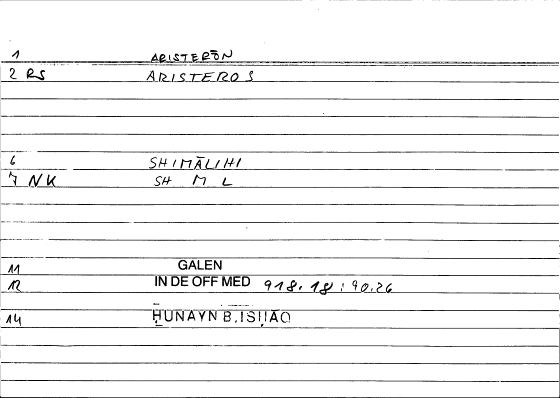 1 ARISTERŌN
2 RS ARISTEROS
6 SHIMĀLIHI
7 NK SH M L
11 GALEN
12 IN DE OFF MED 918.18:90.26
14 ḤUNAYN B.ISḤĀQ